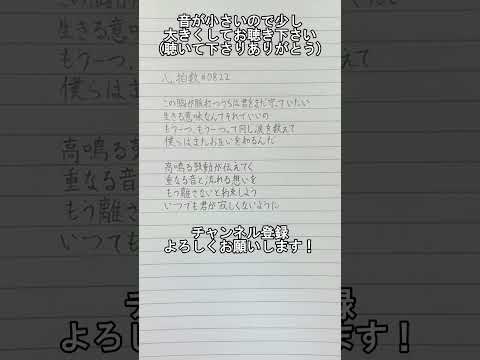 音が小さいので少し
大きくしてお聴き下さい
(聴いて下さりありがとう)
心拍数#0822
この胸が脈打つうちは君をまだ守っていたい
生きる意味なんてそれでいいの
もう一つ、もう一つって同じ涙を数えて
僕らはまたお互いを知るんだ
高鳴る鼓動が伝えてく
重なる音と流れる想いを
もう離さないと約束しよう
いつでも君が寂しくないように
チャンネル登録
よろしくお願いします！